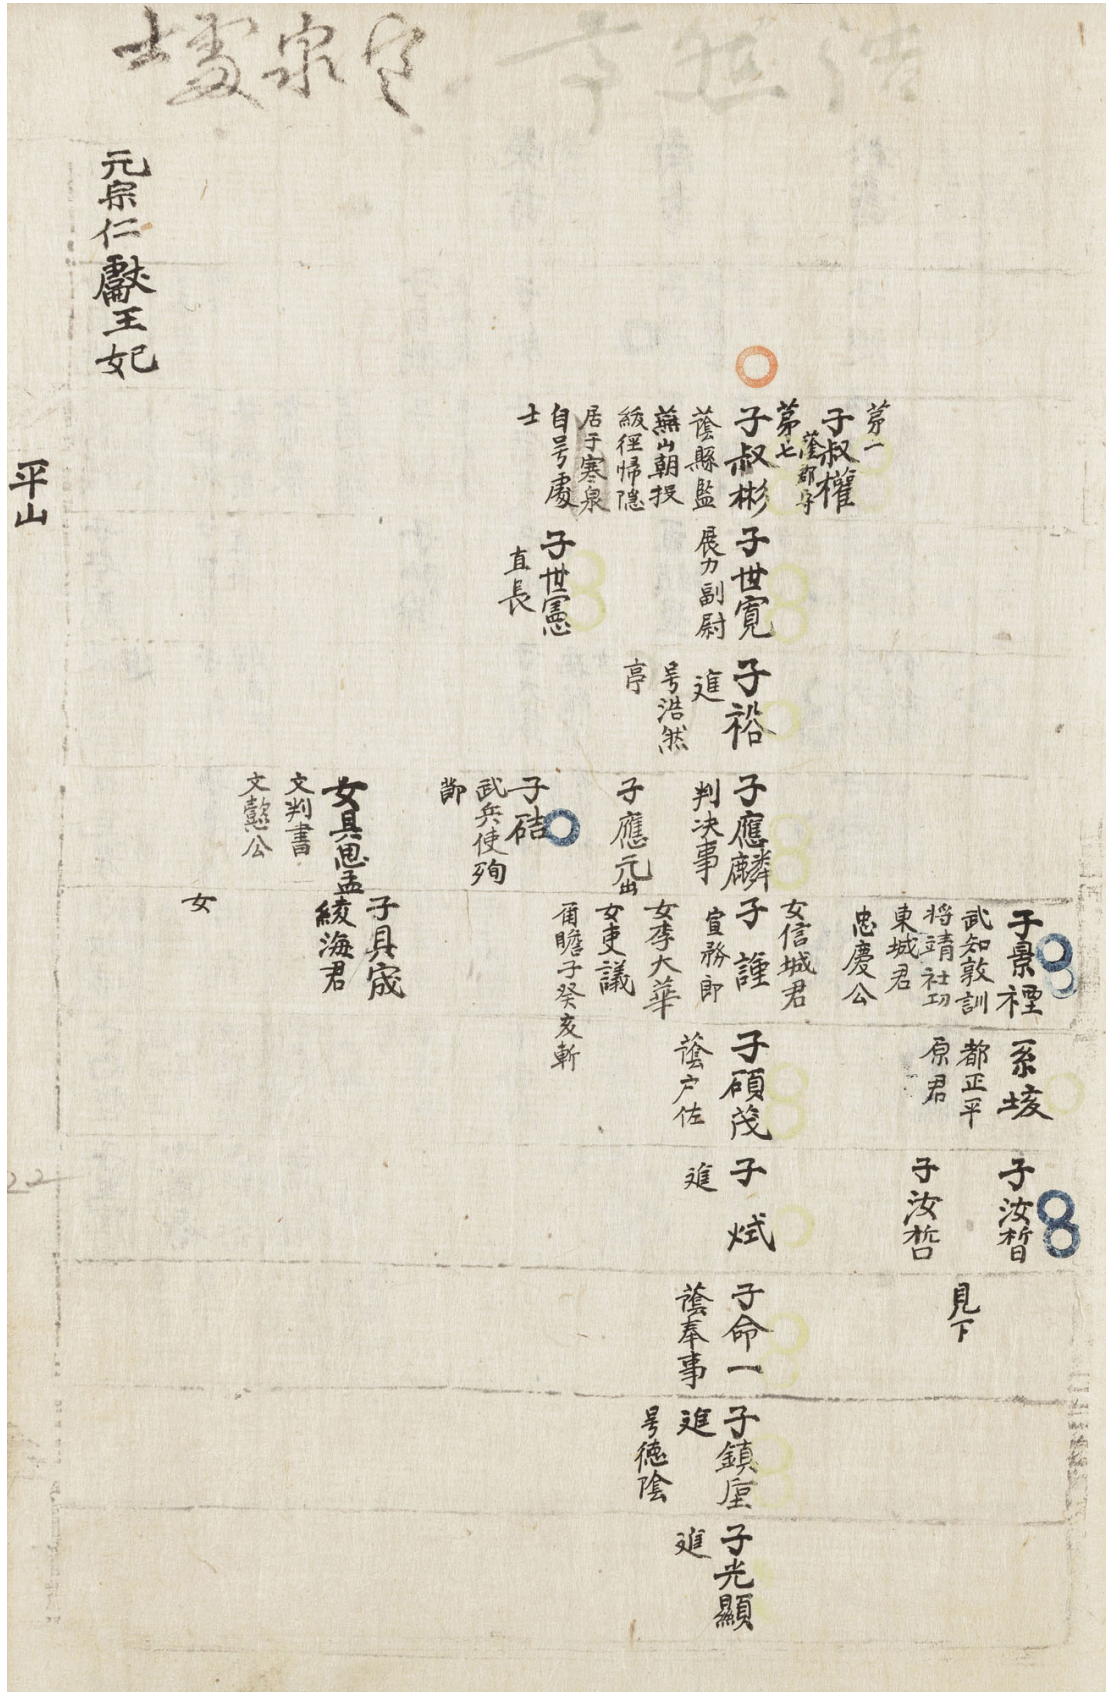 寒泉處士
第一
子叔權
蔭郡守
第七
子叔彬
蔭縣監
燕山朝投
紱徑歸隱
居于寒泉
自号處
士
子世寬
展力副尉
子世憲
直長
子裕
進
号浩然
亭
子應麟
判决事
子應元出
子硈
武兵使殉
節
女具思孟
文判書
文懿公
子景禋
武知敦訓
将靖社功
東城君
忠慶公
女信城君
子𧫴
宣務郎
女李大華
女吏議
甫瞻子癸亥斬
子具宬
綾海君
女
元宗仁獻王妃
系埈
都正平
原君
子碩茂
蔭户佐
子汝晳
子汝哲
子烒
進
見下
子命一
蔭奉事
子鎮垕
進
号德陰
子光顯
進
平山
22